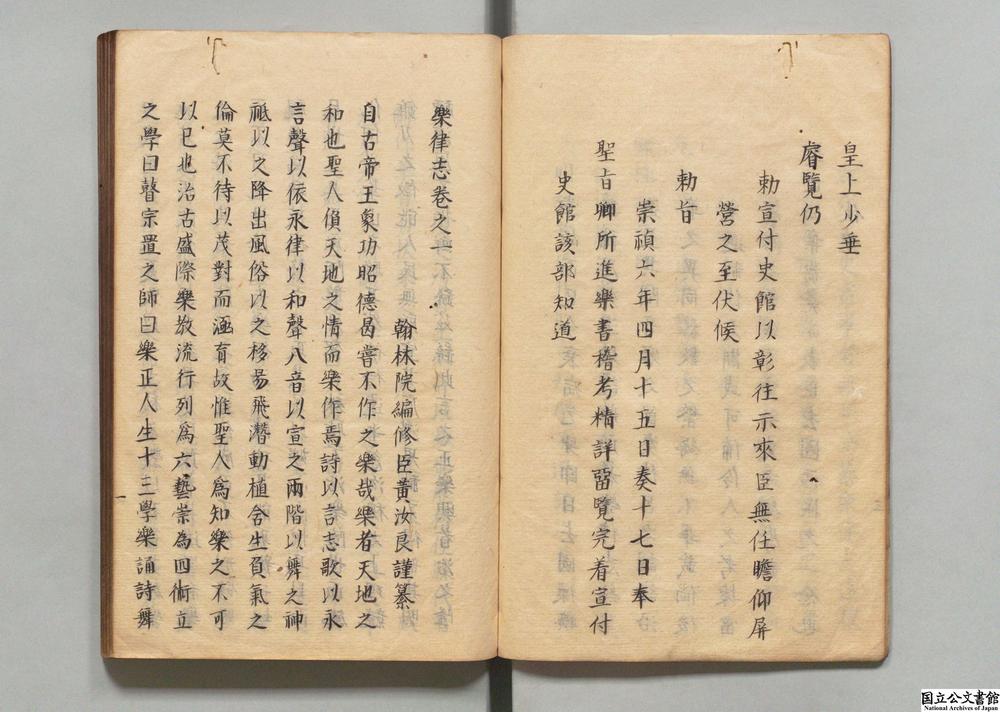 皇上少垂
睿覽仍
勅宣付史館以彰往示來臣無任瞻仰屏
營之至伏候
勅旨
崇禎六年四月十五日奏十七日奉
聖旨卿所進樂書稽考精詳留覽完着宣付
史館該部知道
樂律志卷之一
翰林院編修臣黃汝良謹纂
自古帝王象功昭德曷嘗不作之樂哉樂者天地之
和也聖人偩天地之情而樂作焉詩以言志歌以永
言聲以依永律以和聲八音以宣之兩階以舞之神
祗以之降出風俗以之移易飛潛動植含生負氣之
倫莫不待以茂對而涵育故惟聖人為知樂之不可
以已也治古盛際樂教流行列為六藝崇為四術立
之學曰瞽宗置之師曰樂正人生十三學樂誦詩舞
一
国立公文書館
National Archives of Japan